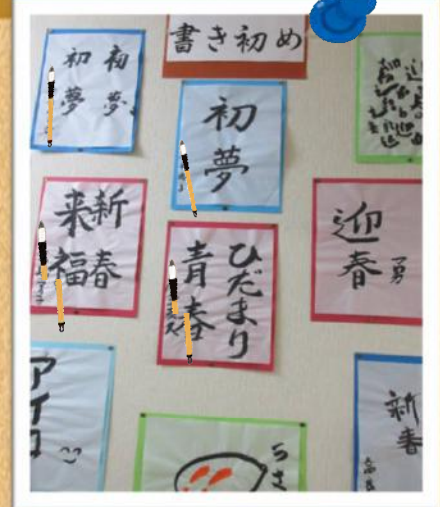 書き初め
初夢
初夢
初夢
新春
来福
ひだまり
青春
迎春
勇
アイ
新春
うさ